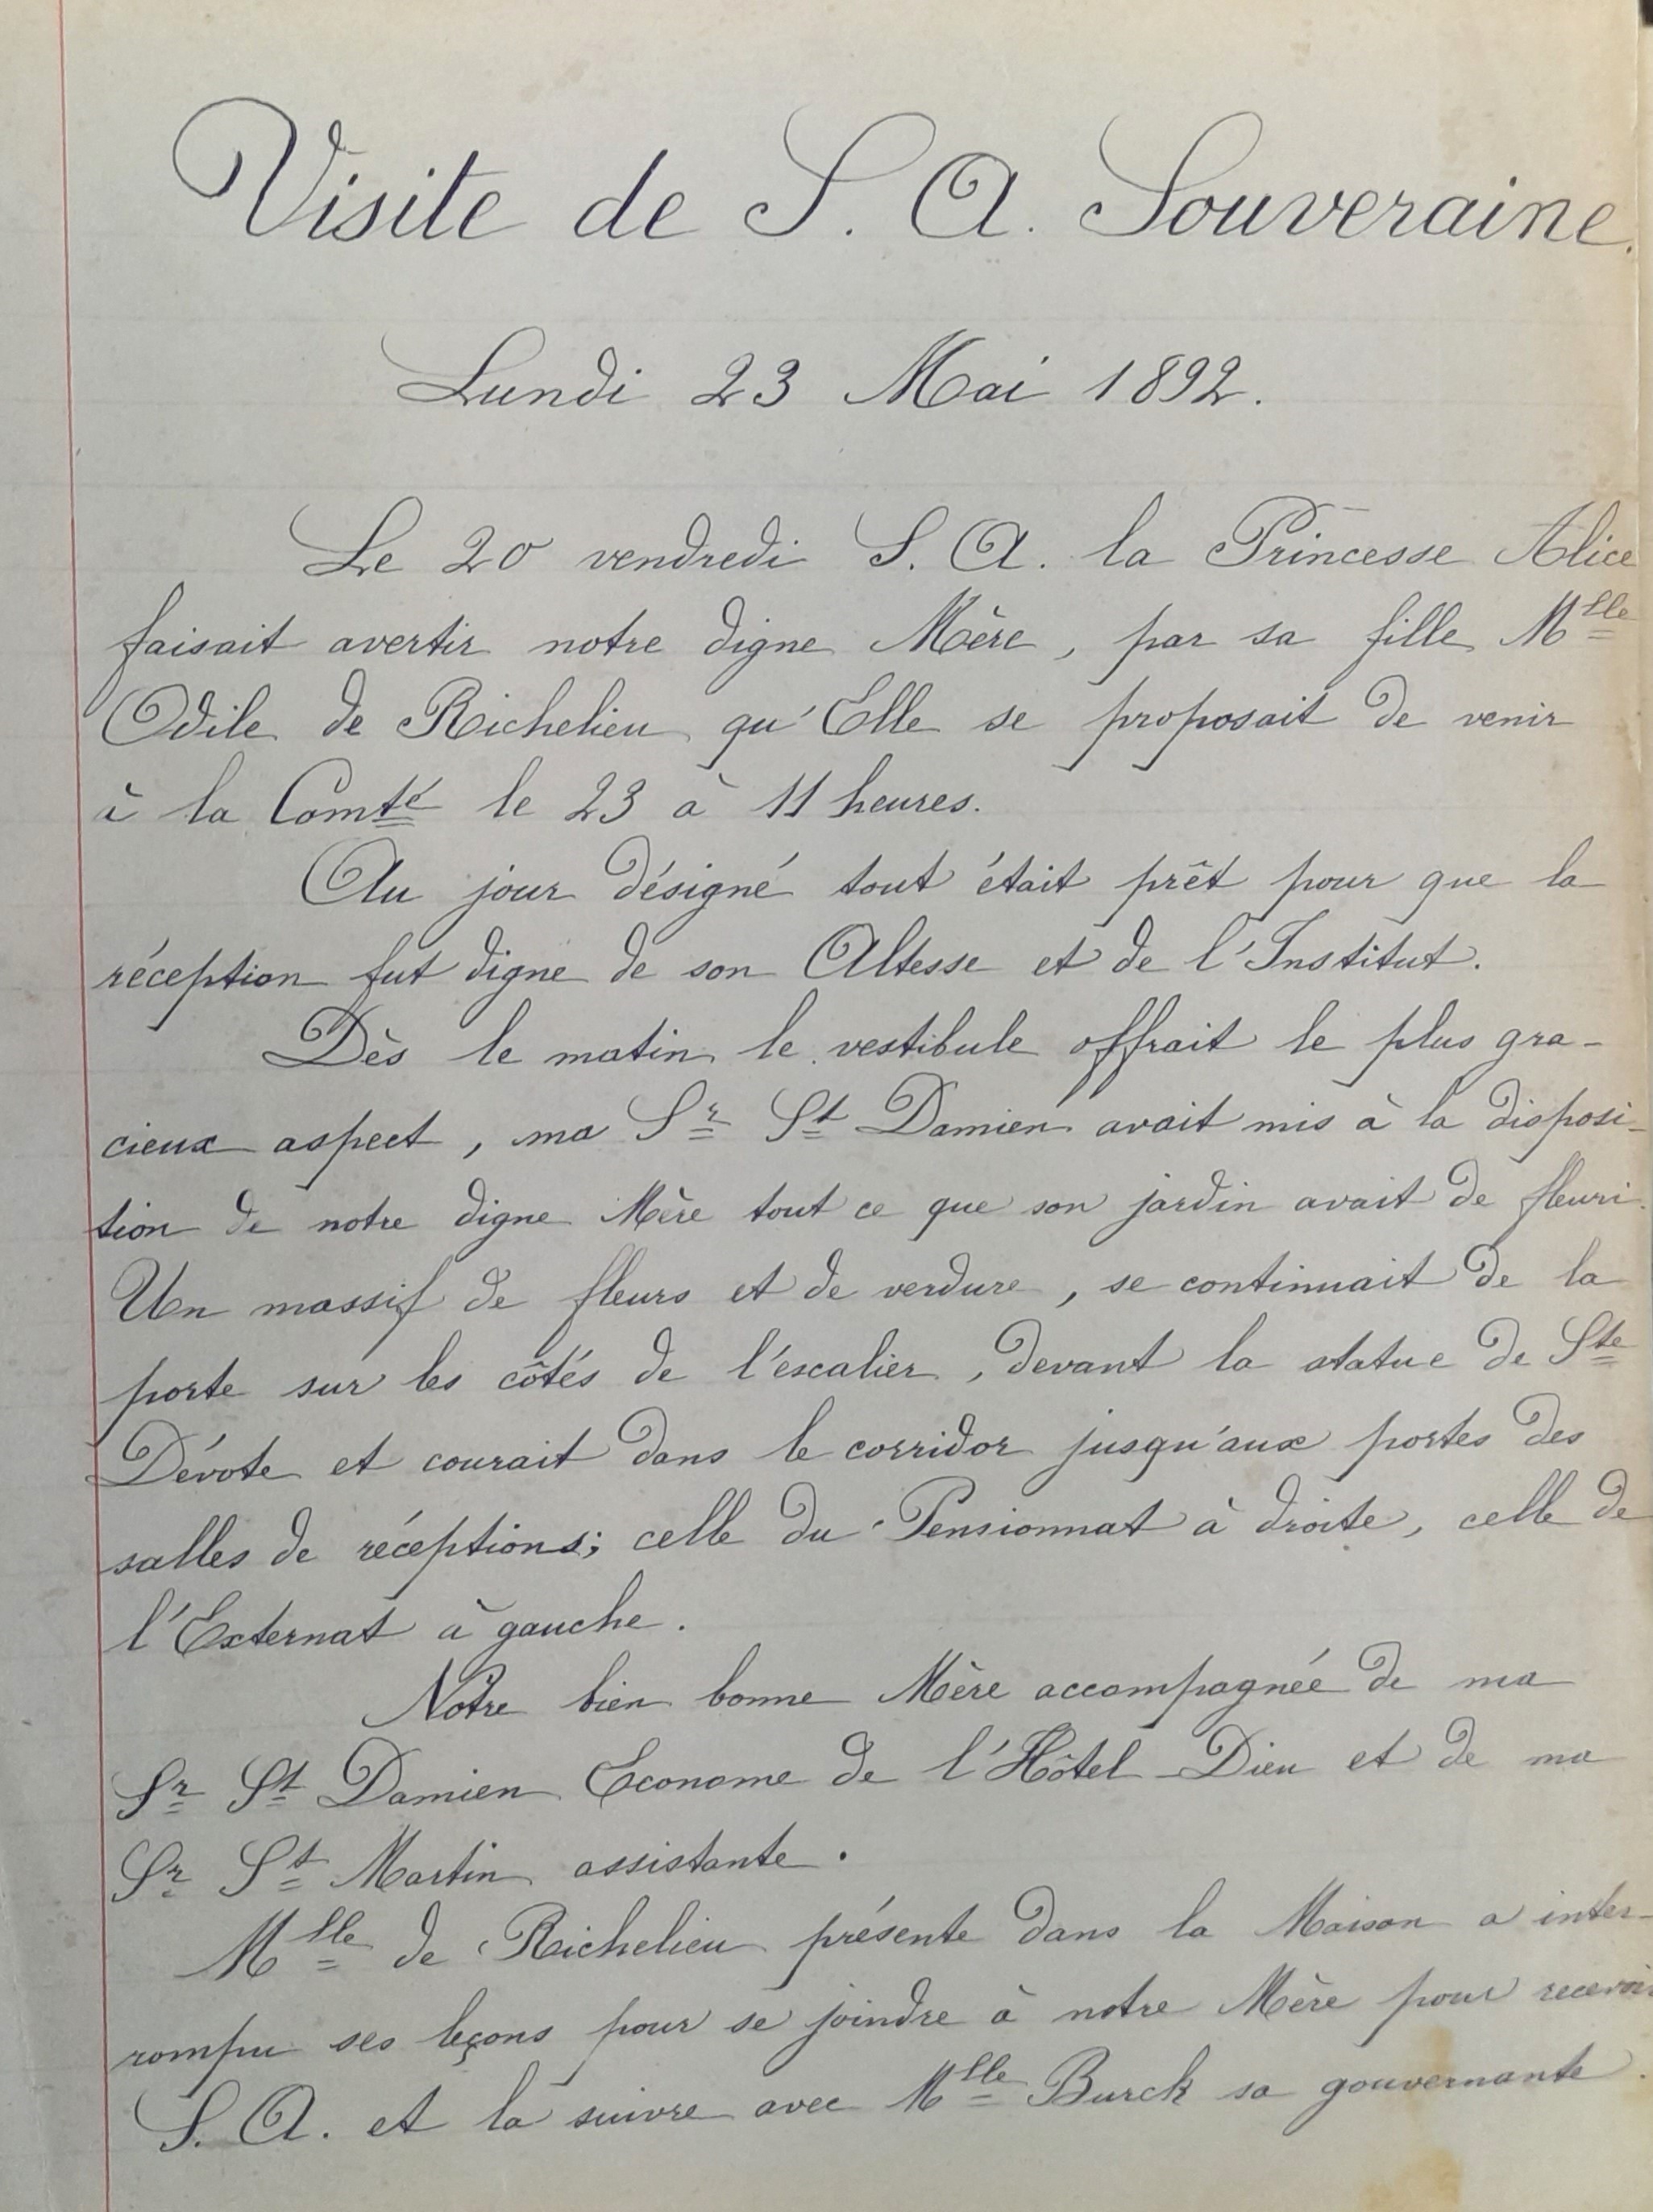 Visite de S. A. Souveraine.
Lundi 23 Mai 1892.
Le 20 vendredi S. A. la Princesse Alice
faisait avertir notre digne Mère, par sa fille Mlle
Odile de Richelieu qu'Elle se proposait de venir
à la Comté le 23 à 11 heures.
Au jour désigné tout était prêt pour que la
réception fut digne de son Altesse et de l'Institut.
Dès le matin le vestibule offrait le plus gra-
cieux aspect, ma Sr St Damien avait mis à la disposi-
tion de notre digne Mère tout ce que son jardin avait de fleuri.
Un massif de fleurs et de verdure, se continuait de la
porte sur les côtés de l'escalier, devant la statue de Ste
Dévote et courait dans le corridor jusqu'aux portes des
salles de réceptions; celle du Pensionnat à droite, celle de
l'Externat à gauche.
Notre bien bonne Mère accompagnée de ma
Sr St Damien Econome de l'Hôtel-Dieu et de ma
Sr St Martin assistante.
Mlle de Richelieu présente dans la Maison a inter-
rompu ses leçons pour se joindre à notre Mère pour recevoir
S. A. et la suivre avec Mlle Burck sa gouvernante.